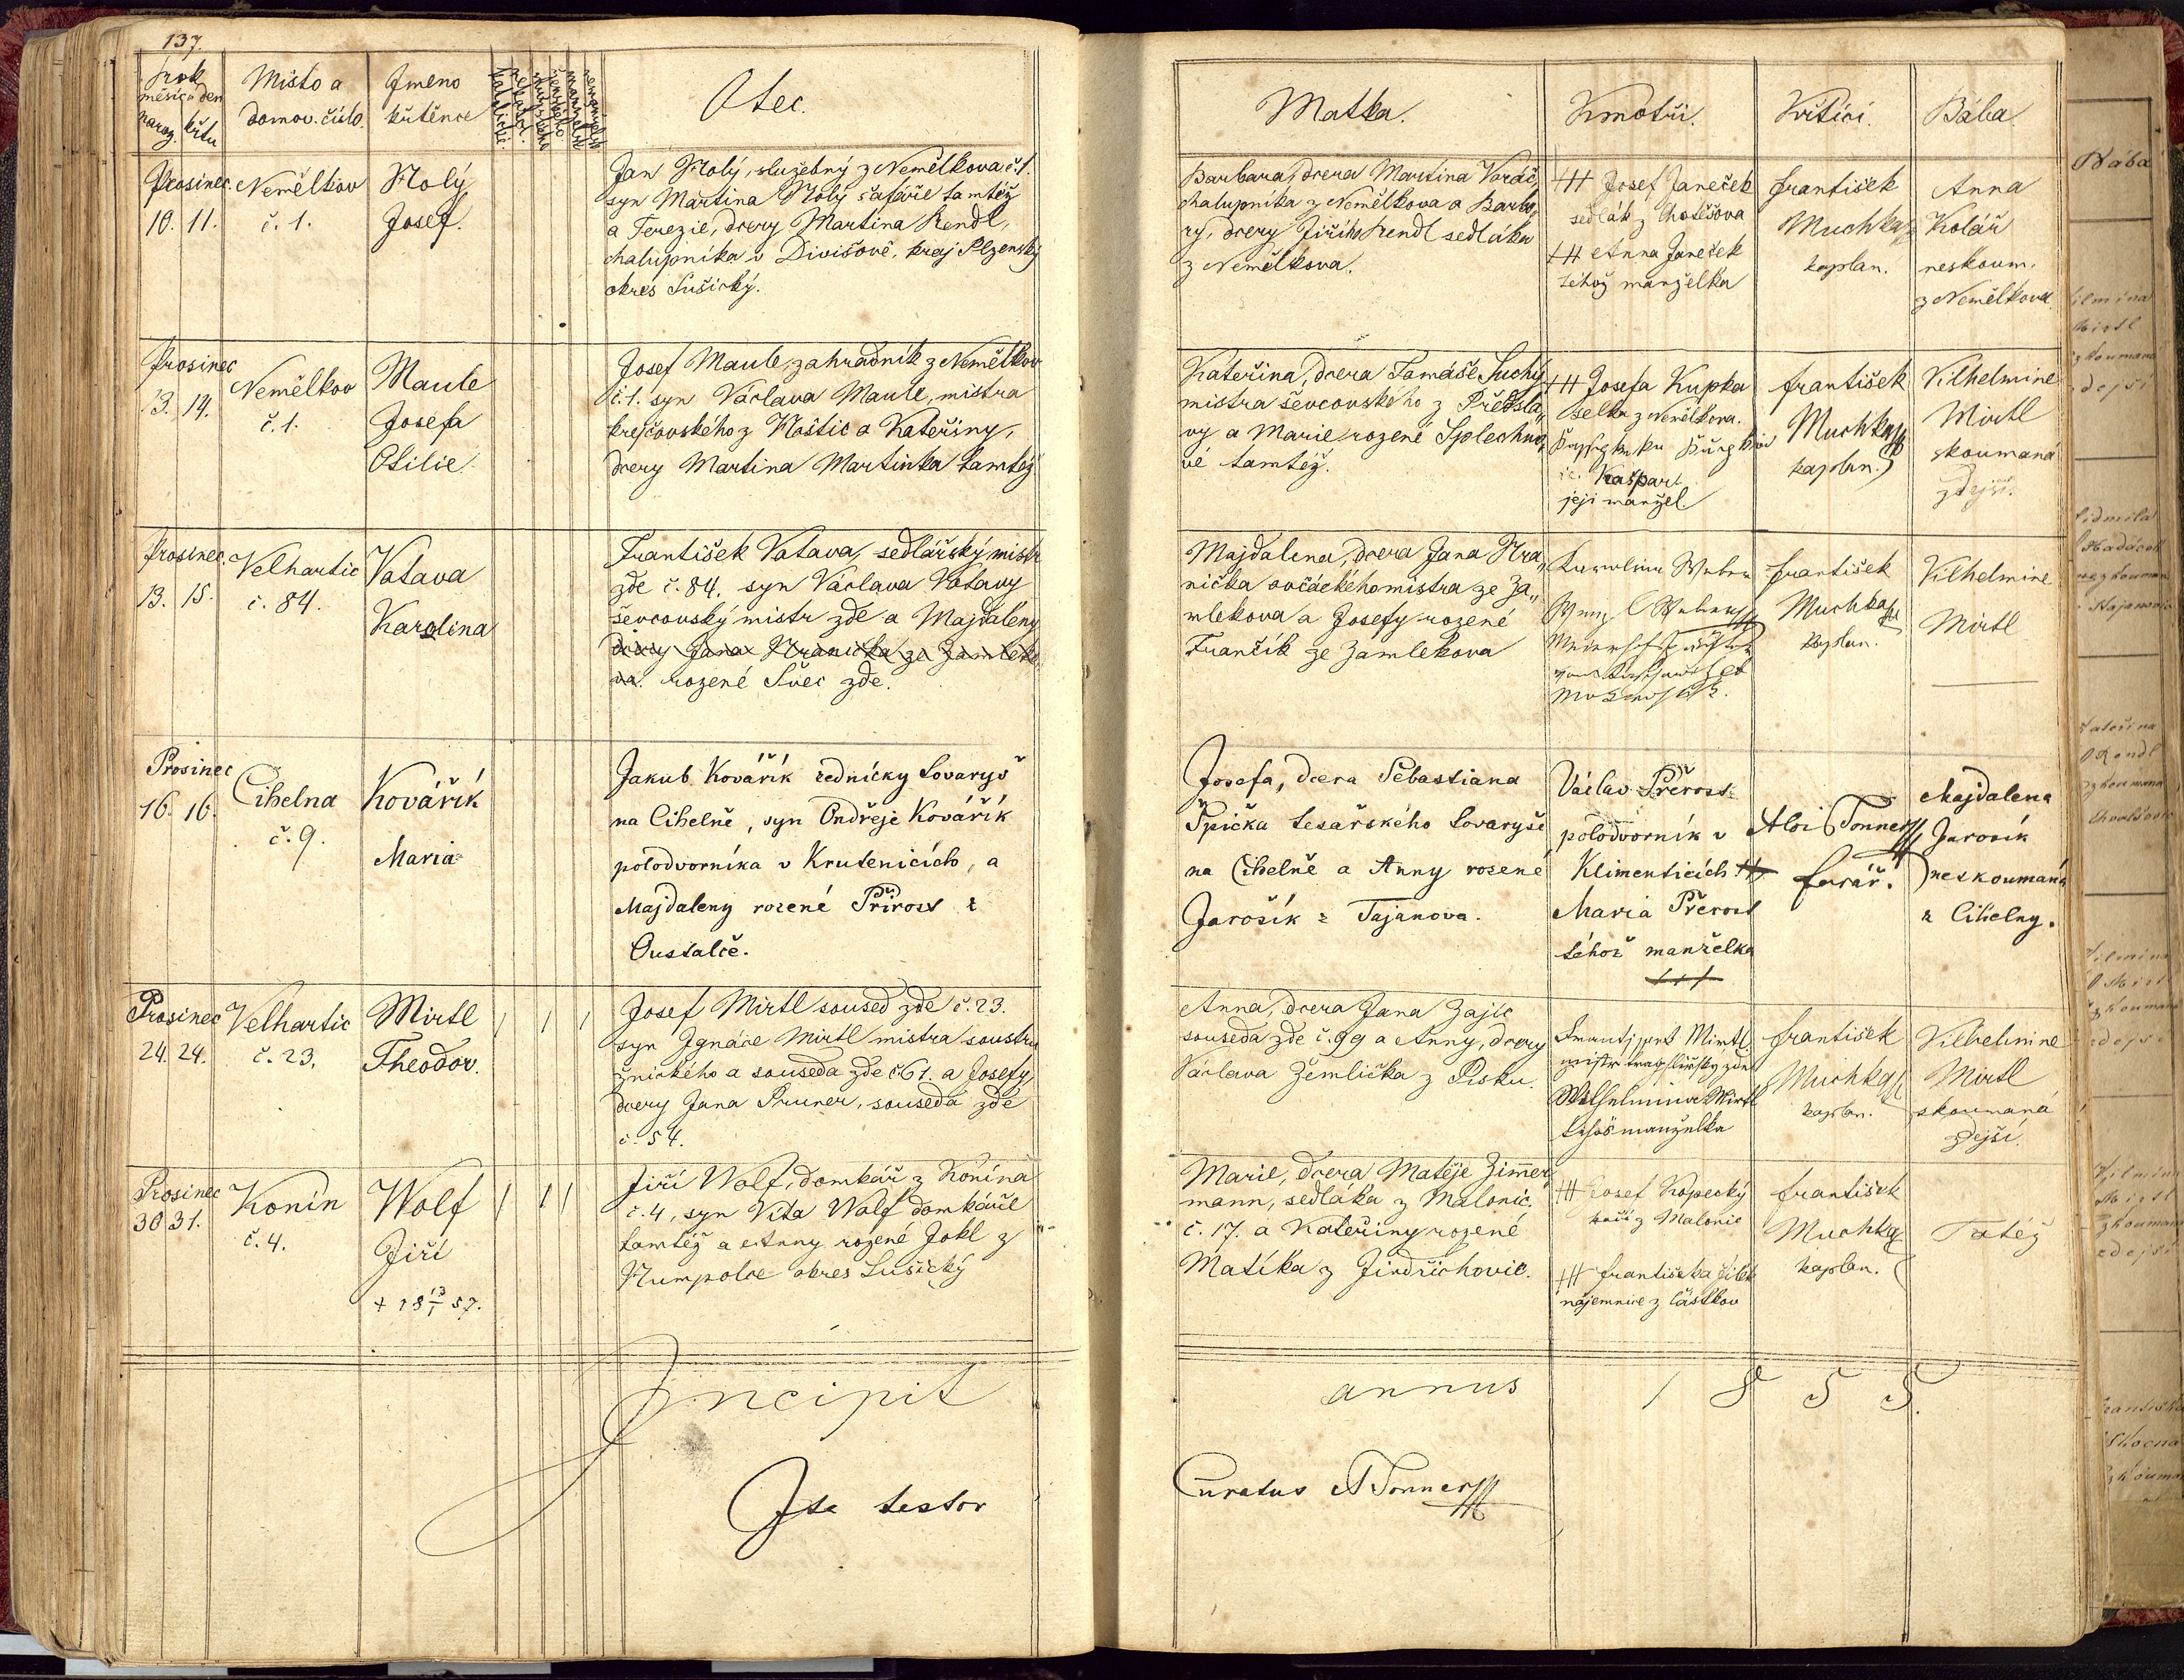 137.
rok
měsíc a den
naroz. křtu
Místo a
domov. číslo.
Jmeno
křtěnce
Otec.
Matka.
Kmotři.
Křtící.
Bába.
Prosinec
10. 11.
Nemělkov
č. 1.
Holý
Josef.
Jan Holý, služebný z Nemělkova č. 1.
syn Martina Holý šafáře tamtéž
a Terezie, dcery Martina Rendl,
chalupníka v Divišově, kraj Plzenský
okres Sušický.
Barbara, dcera Martina
chalupníka z Nemělkova a Barbo„
ry, dcery Jiřího Rendl sedláka
z Nemělkova.
+++ Josef Janeček
sedlák z Chotěšova
+++ Anna Janeček
téhož manželka
František
Muchka
kaplan.
Anna
Kolář
neskoum.
z Nemělkova
Prosinec
13. 14.
Nemělkov
č. 1.
Maule
Josefa
Otilie
Josef Maule, zahradník z Nemělkov
č. 1. syn Václava Maule, mistra
krejčovského z Hoštic a Kateřiny,
dcery Martina Martínka tamtéž
Kateřina, dcera Tomáše Suchý
mistra ševcovského z Předsla„
vy a Marie rozené Splechno„
vé tamtéž.
+++ Josefa Kupka
selka z Nemělkova.
Kašpar
její manžel.
František
Muchka
kaplan.
Vilhelmine
Mirtl
skoumaná
zdejší.
Prosinec
13. 15.
Velhartic
č. 84.
Votava
Karolina
František Votava, sedlářský mistr
zde č. 84. syn Václava Votavy
ševcovský mistr zde a Majdaleny
dcery Jana Hranička ze Zamleko
va. rozené Švec zde.
Majdalena, dcera Jana Hra„
nička ovčáckého mistra ze Za„
mlekova a Josefy rozené
Frančík ze Zamlekova
František
Muchka
kaplan.
Vilhelmine
Mirtl
Prosinec
16. 16.
Cihelna
č. 9.
Kovářík
Maria
Jakub Kovářík zednický tovaryš
na Cihelně, syn Ondřeje Kovářík
polodvorníka v Krutenicích, a
Majdaleny rozené Přirost z
Oustalče.
Josefa, dcera Sebastiana
Špička tesařského tovaryše
na Cihelně a Anny rozené
Jarošík z Tajanova.
Václav Přerost
polodvorník v
Klimenticích +++
Maria Přerost
téhož manželka
+++
Aloi Tonner
farář.
Majdalena
Jarosík
neskoumaná
z Cihelny.
Prosinec
24. 24.
Velhartic
č. 23,
Mirtl
Theodor.
Josef Mirtl soused zde č. 23.
syn Ignáce Mirtl mistra soustru
žnického a souseda zde č 61. a Josefy,
dcery Jana Pruner, souseda zde
č. 54.
Anna, dcera Jana Zajíc
souseda zde č. 99 a Anny, dcery
Václava Žemlička z Písku.
Mirtl
mistr zde
Wilhelmina Mirtl
téhož manželka
František
Muchka
kaplan.
Vilhelmine
Mirtl
skoumaná
zdejší.
Prosinec
30 31.
Konín
č. 4.
Wolf
Jiří
+ 18 13/1 57.
Jiří Wolf, domkář z Konína
č. 4, syn Víta Wolf domkáře
tamtéž a Anny rozené Jokl z
Humpolce okres Sušický
Marie, dcera Matěje Zimmer
mann, sedláka z Malonic.
č. 17. a Kateřiny rozené
Matíka z Jindřichovic.
+++ Josef Kopecký
z Malonic
+++ Františka Jílek
nájemnice z Částkov
František
Muchka
kaplan.
Tatéž
Incipit annus 1855.
Ita testor Curatus A Tonner